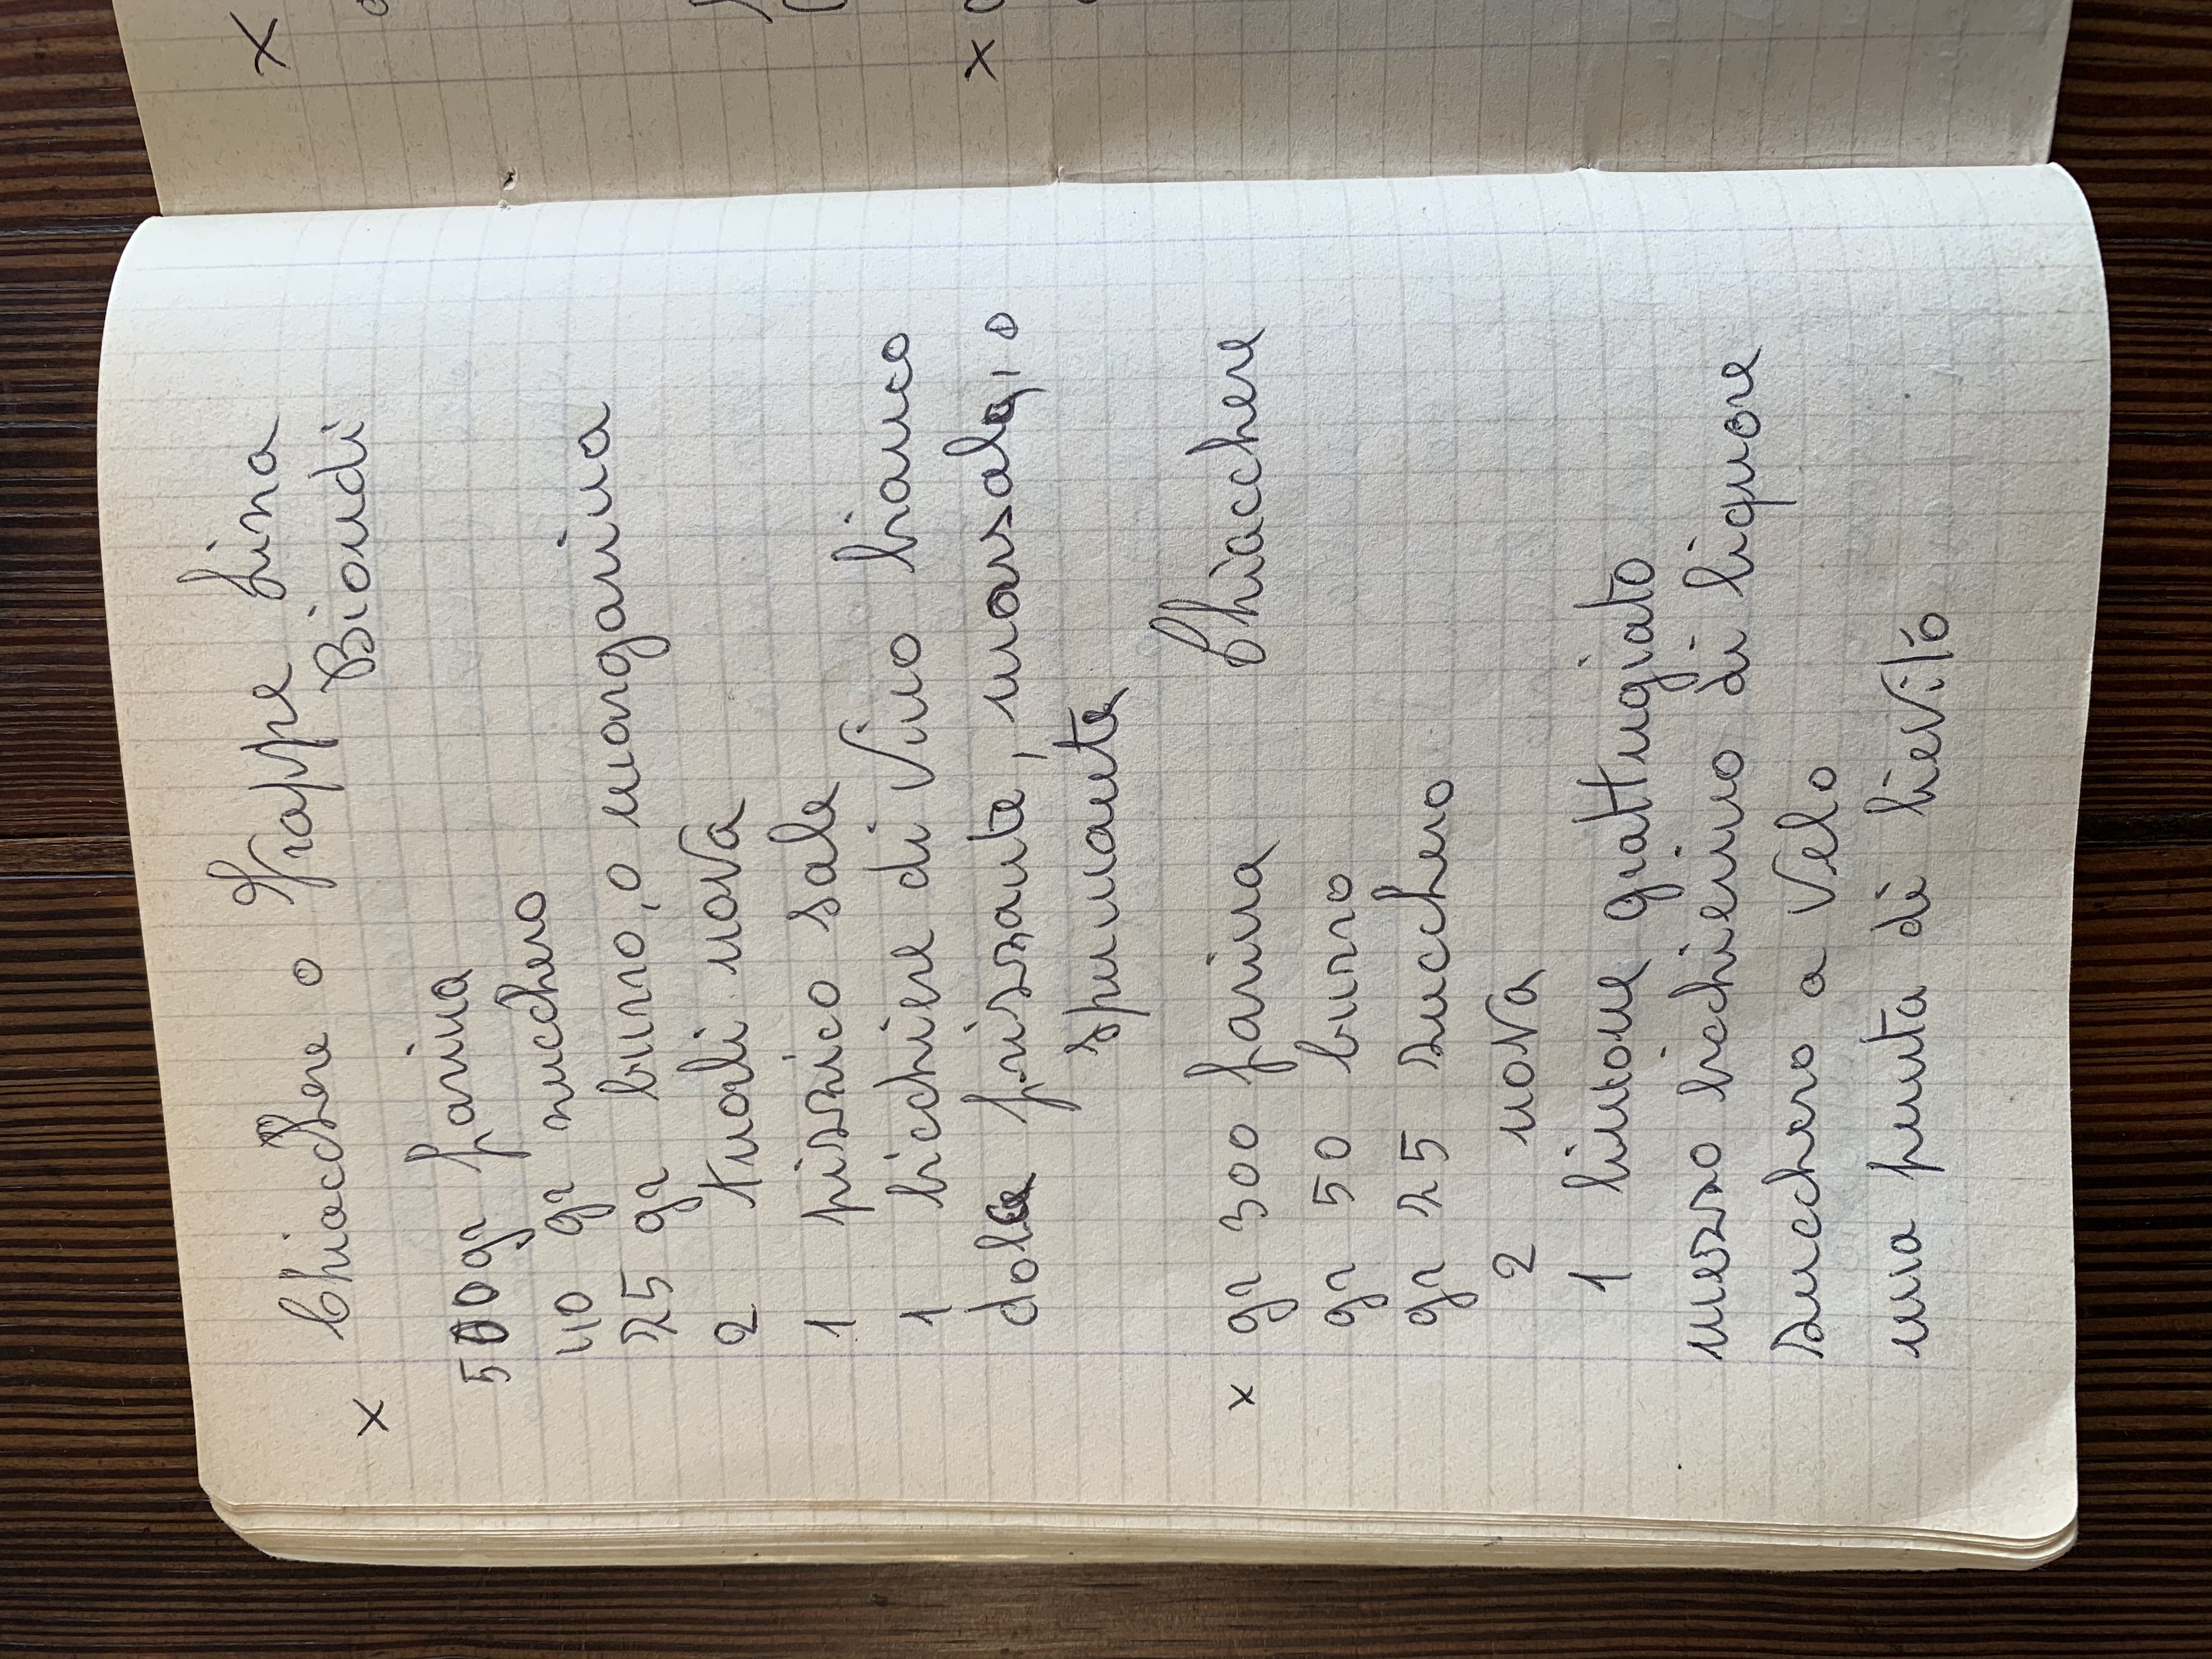 Chiacchere o Frappe Lina
Biondi
x
500 gr farina
40 gr zucchero
25 gr burro, o margarina
2 tuorli uova
1 pizzico sale
1 bicchiere di Vino bianco
dolce frizzante, marsala, o
spumante
x gr 300 farina Chiacchere
gr 50 burro
gr 25 zucchero
2 uova
1 limone grattugiato
mezzo bicchierino di liquore
zucchero a Velo
una punta di lievito
x
x